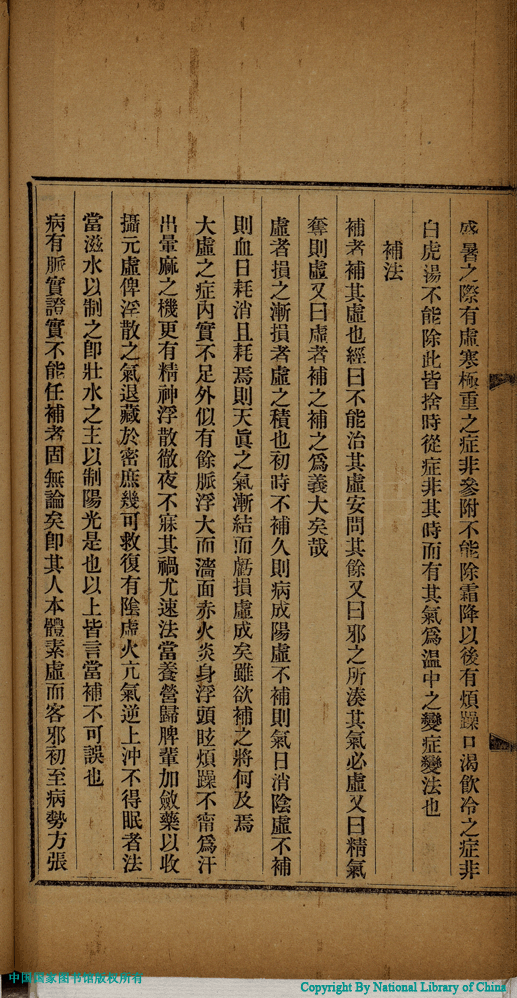 盛暑之際有虛寒極重之症非參附不能除霜降以後有煩躁口渴飲冷之症非
白虎湯不能除此皆捨時從症非其時而有其氣爲温中之變症變法也
補法
補者補其虛也經曰不能治其虛安問其餘又曰邪之所湊其氣必虛又曰精氣
奪則虛又曰虛者補之補之爲義大矣哉
虛者損之漸損者虛之積也初時不補久則病成陽虛不補則氣日消陰虛不補
則血日耗消且耗焉則天眞之氣漸結而虧損虛成矣雖欲補之將何及焉
大虛之症內實不足外似有餘脈浮大而濇面赤火炎身浮頭眩煩躁不甯爲汗
出暈麻之機更有精神浮散徹夜不寐其禍尤速法當養營歸脾輩加斂藥以收
攝元虛俾浮散之氣退藏於密庶幾可救復有陰虛火亢氣逆上沖不得眠者法
當滋水以制之卽壯水之主以制陽光是也以上皆言當補不可誤也
病有脈實證實不能任補者固無論矣卽其人本體素虛而客邪初至病勢方張
中国国家图书馆版权所有
Copyright By National Library of China